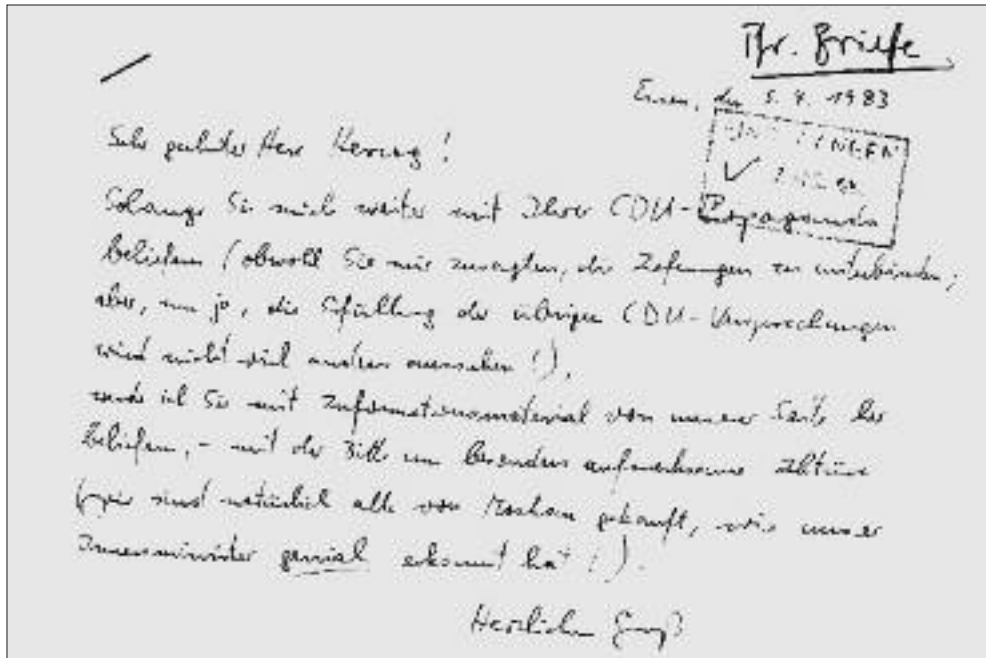 Thr. Briefe
Essen, den 5. 4. 1983
EINGEGANGEN
Sehr geehrter Herr Herzog!
Solange Sie mich weiter mit Ihrer CDU-Propaganda
beliefern (obwohl Sie mir zusagten, die Lieferungen zu unterbinden;
aber, nun ja, die Erfüllung der übrigen CDU-Versprechungen
wird nicht viel anders aussehen!),
werde ich Sie mit Informationsmaterial von unserer Seite her
beliefern, - mit der Bitte um besonders aufmerksame Lektüre
(wir sind natürlich alle von Moskau gekauft, wie unser
Innenminister genial erkannt hat!).
Herzlichen Gruß